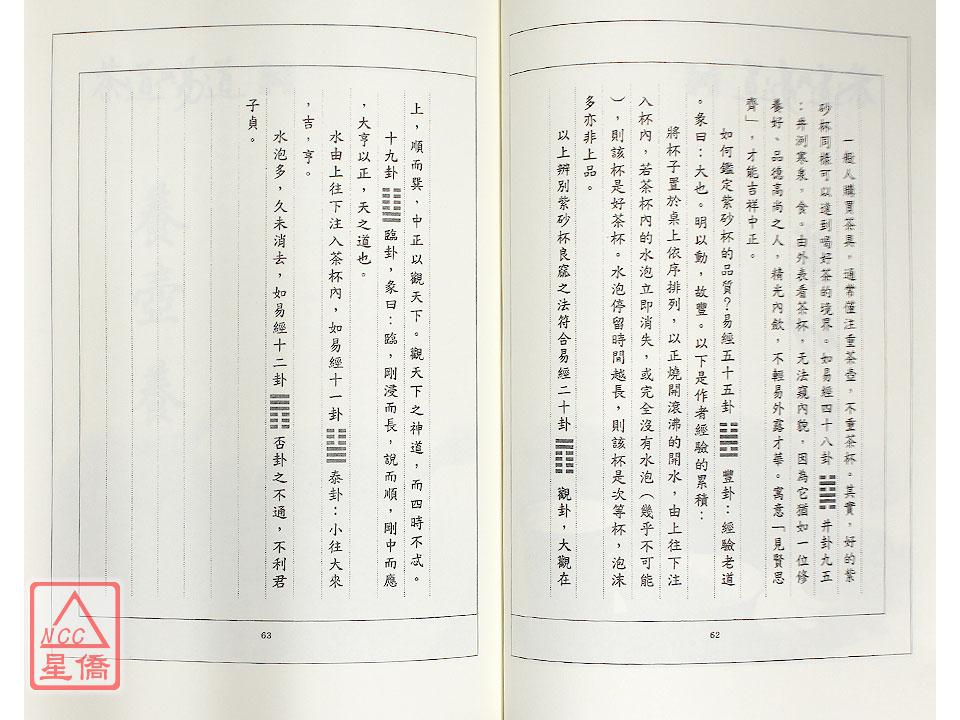 一般人購買茶具，通常僅注重茶壺，不重茶杯。其實，好的紫
砂杯同樣可以達到喝好茶的境界。如易經四十八卦䷯井卦九五
：井洌寒泉，食。由外表看茶杯，无法窺內貌，因為它猶如一位修
養好。品德高尚之人，精光內斂，不輕易外露才華。寓意「見賢思
齊」，才能吉祥中正。
如何鑑定紫砂杯的品質？易經五十五卦䷶豐卦：經驗老道
。彖曰：大也。明以動，故豐。以下是作者經驗的累積：
將杯子置於桌上依序排列，以正燒開滾沸的開水，由上往下注
入杯內，若茶杯內的水泡立即消失，或完全沒有水泡（幾乎不可能
），則該杯是好茶杯。水泡停留時間越長，則該杯是次等杯，泡沫
多亦非上品。
以上辨別紫砂杯良窳之法符合易經二十卦䷓觀卦，大觀在
62
上，順而巽，中正以觀天下。觀天下之神道，而四時不忒。
十九卦䷒臨卦，彖曰：臨，剛浸而長，說而順，剛中而應
，大亨以正，天之道也。
水由上往下注入茶杯內，如易經十一卦䷊泰卦：小往大來
，吉，亨。
水泡多，久未消去，如易經十二卦䷋否卦之不通，不利君
子貞。
63
NCC
星僑